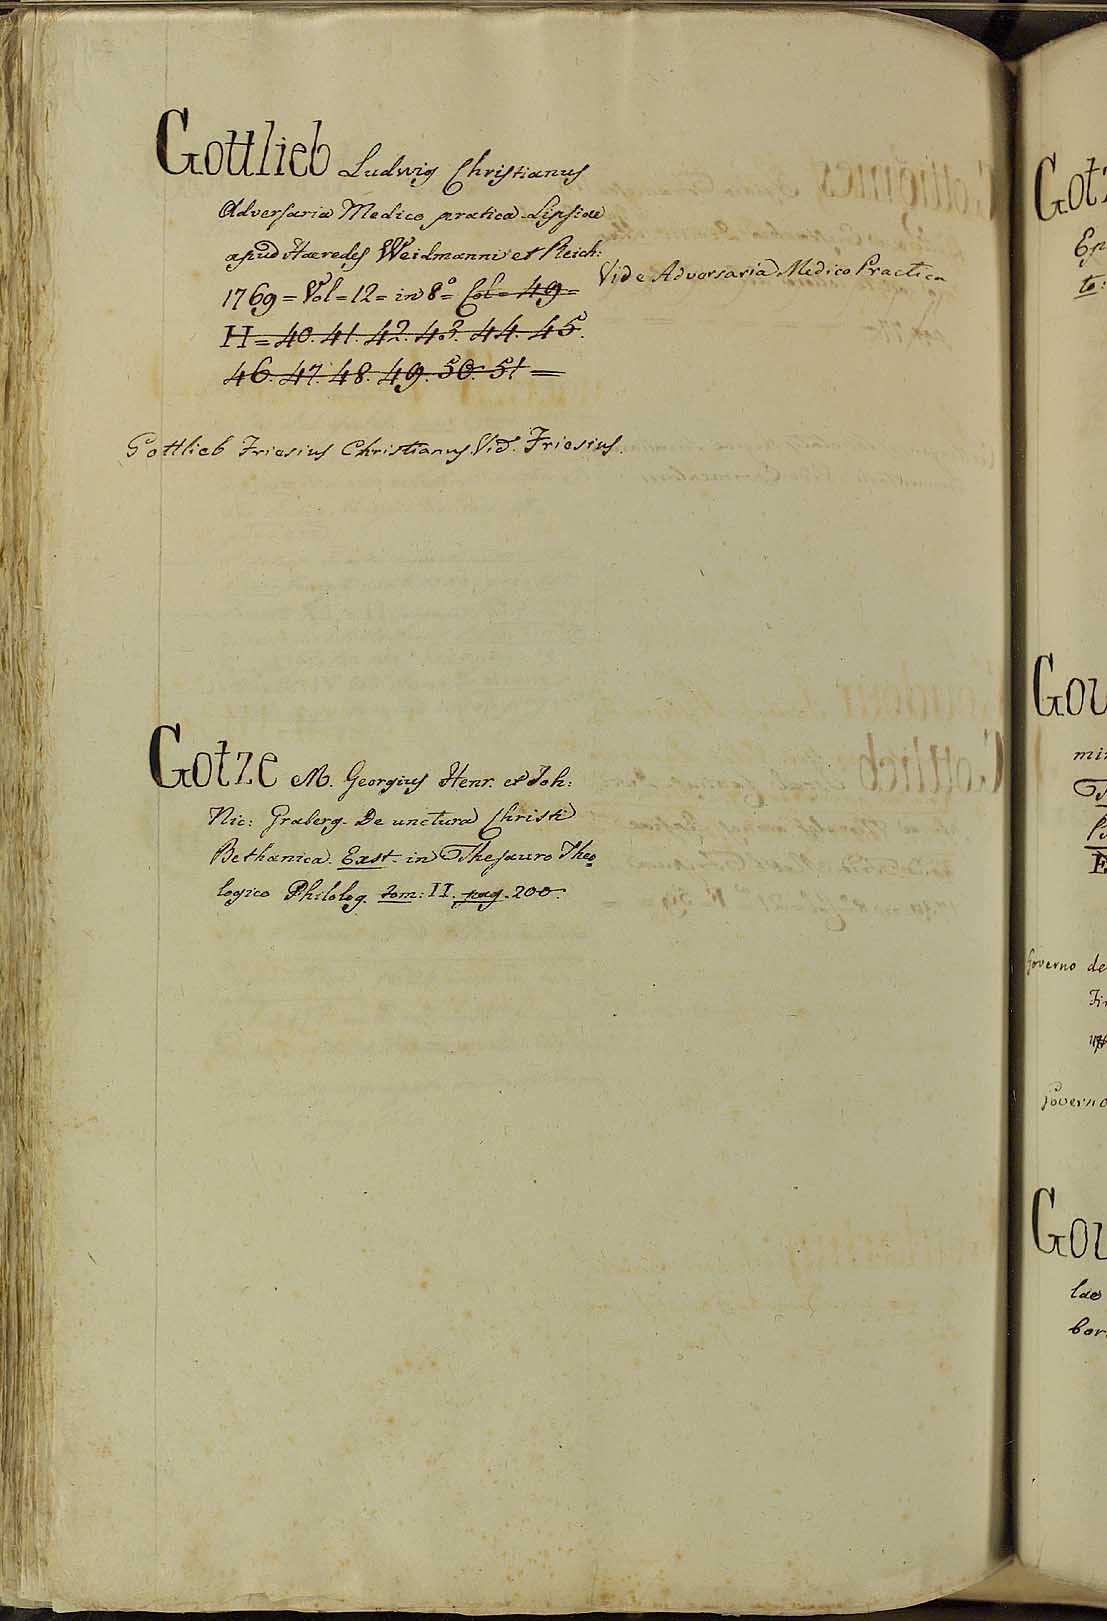 Gottlieb Ludwig Christianus
Adversaria Medico pratica Lipsiae
apud Haeredes Weidmanni et Reich:
Vide Adversaria Medico Practica
1769 = Vol = 12 = in 8° = Col = 49 =
H = 40. 41. 42. 43. 44. 45.
46. 47. 48. 49. 50. 51 =
Gottlieb Friesius Christianus. Vid. Friesius.
Gotze M. Georgius Henr. et Joh:
Nic: Graberg. De unctura Christi
Bethanica. Exst. in Thesauro Theo
logico Philolog. tom: II. pag. 200.
Got
Ep
to:
Gou
min
E
Governo de
Governo
Gou
lao
bor